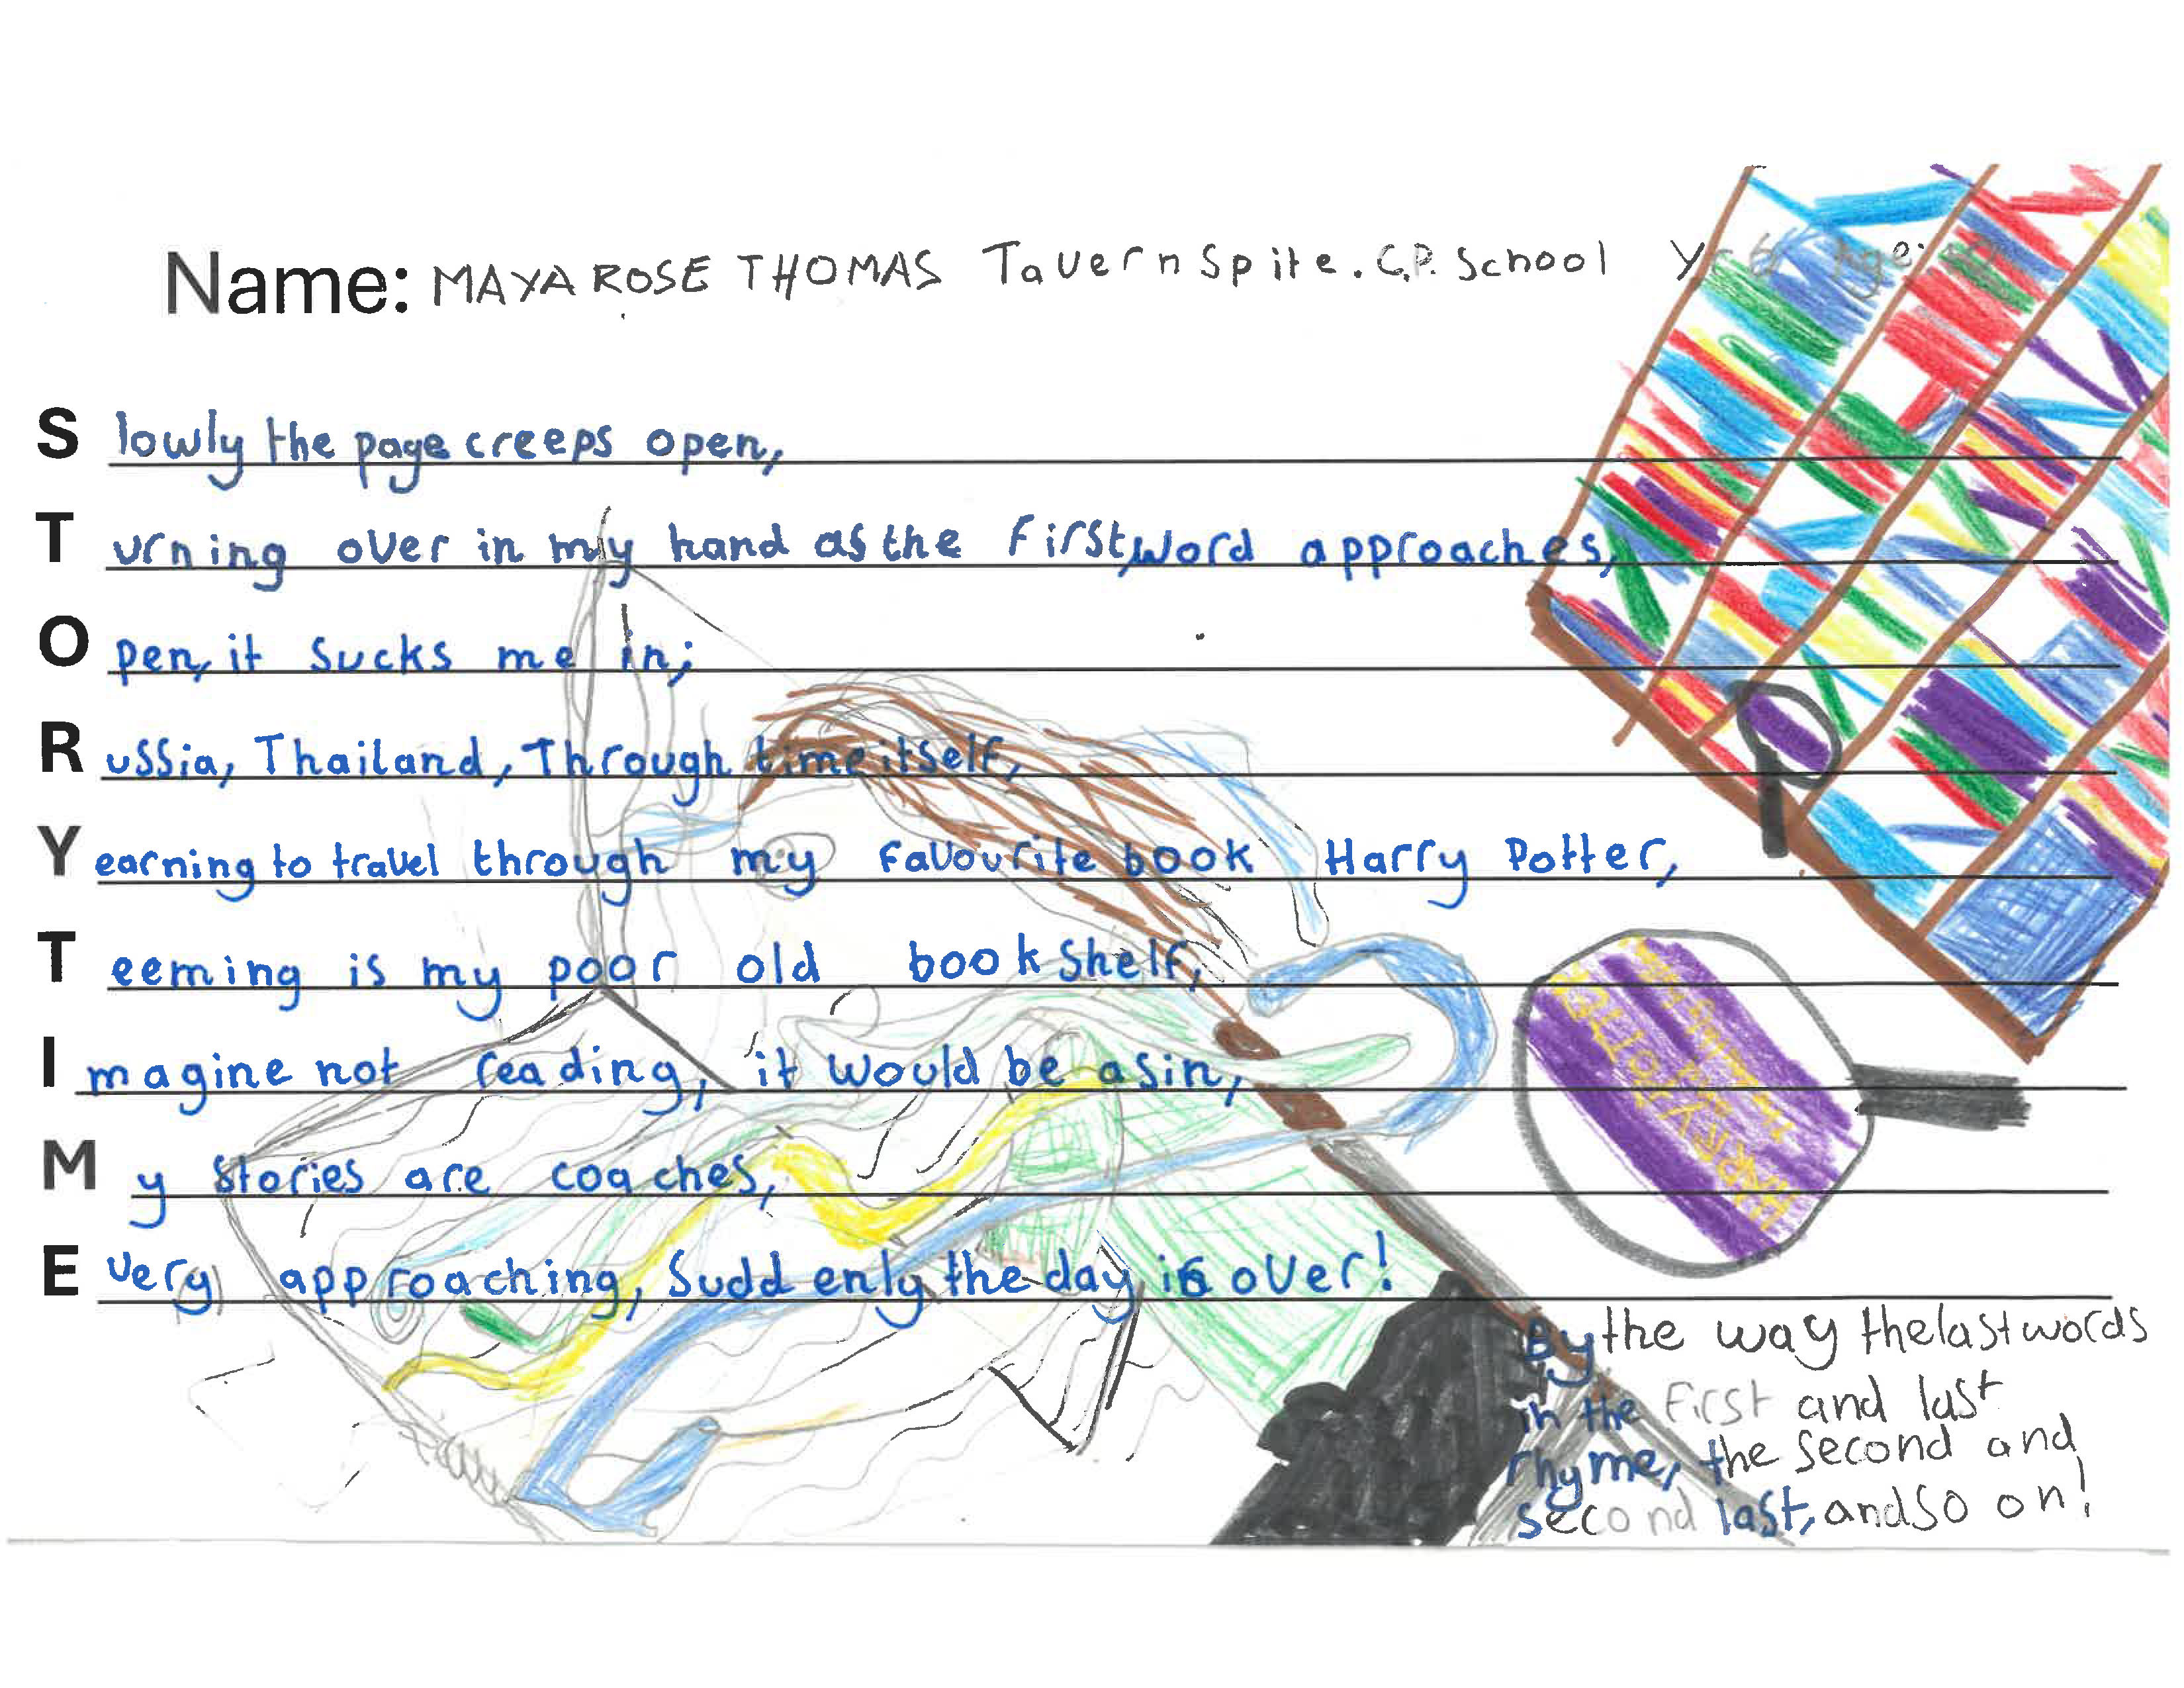 Name: MAYA ROSE THOMAS Tavernspite. C.P. School Yr6 Age:
Slowly the page creeps open,
Turning over in my hand as the first, word approaches,
Open, it sucks me in;
Russia, Thailand, Through time itself,
Yearning to travel through my favourite book Harry Potter,
Teeming is my poor old book shelf,
Imagine not reading, it would be a sin,
My stories are coaches,
Every approaching, Suddenly the day is over!
HARRY POTTER
By the way the last words
in the First and last
rhyme, the second and
second last, and so on!